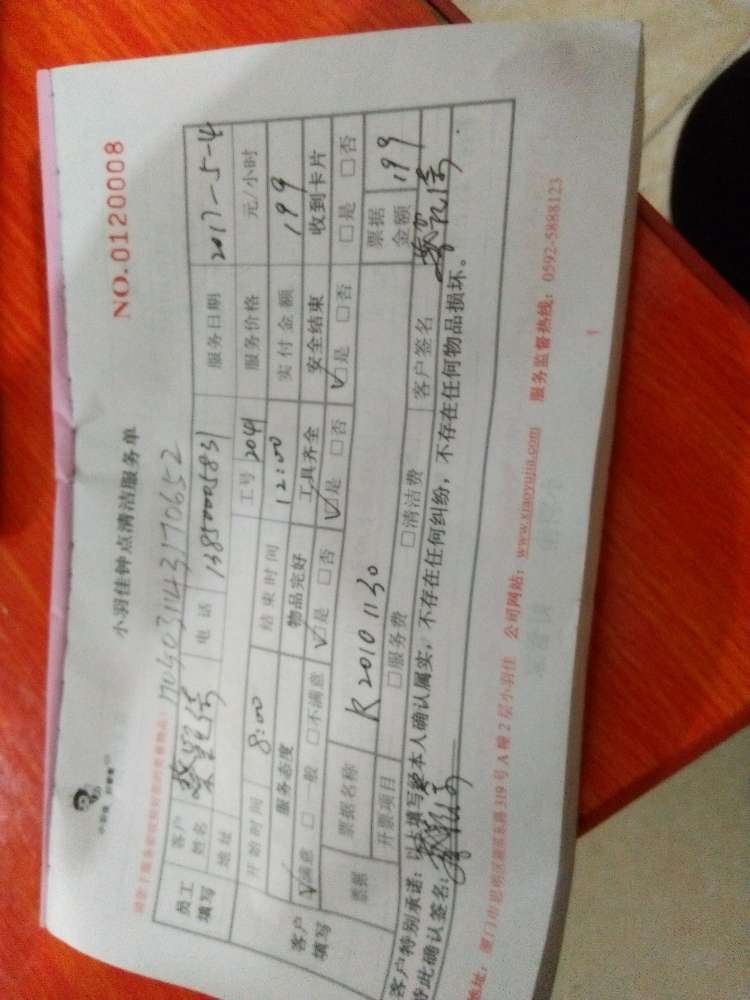 小羽佳钟点清洁服务单
NO.0120008
1704031143170652
员工填写 客户姓名 电话 13850005831 服务日期 2017-5-4
地址 工号 2041 服务价格 元/小时
开始时间 8:00 结束时间 12:00 实付金额 199
客户填写 服务态度 物品完好 工具齐全 安全结束 收到卡片
☑满意 □一般 □不满意 ☑是 □否 ☑是 □否 ☑是 □否 □是 □否
票据 票据名称 R20101130 票据金额 199
开票项目 □服务费 □清洁费 客户签名
客户特别承诺：以上填写经本人确认属实，不存在任何纠纷，不存在任何物品损坏。
特此确认签名：
地址：厦门市思明区 319号A幢2层小羽佳 公司网站：www.xiaoyujia.com 服务监督热线：0592-5888123
1